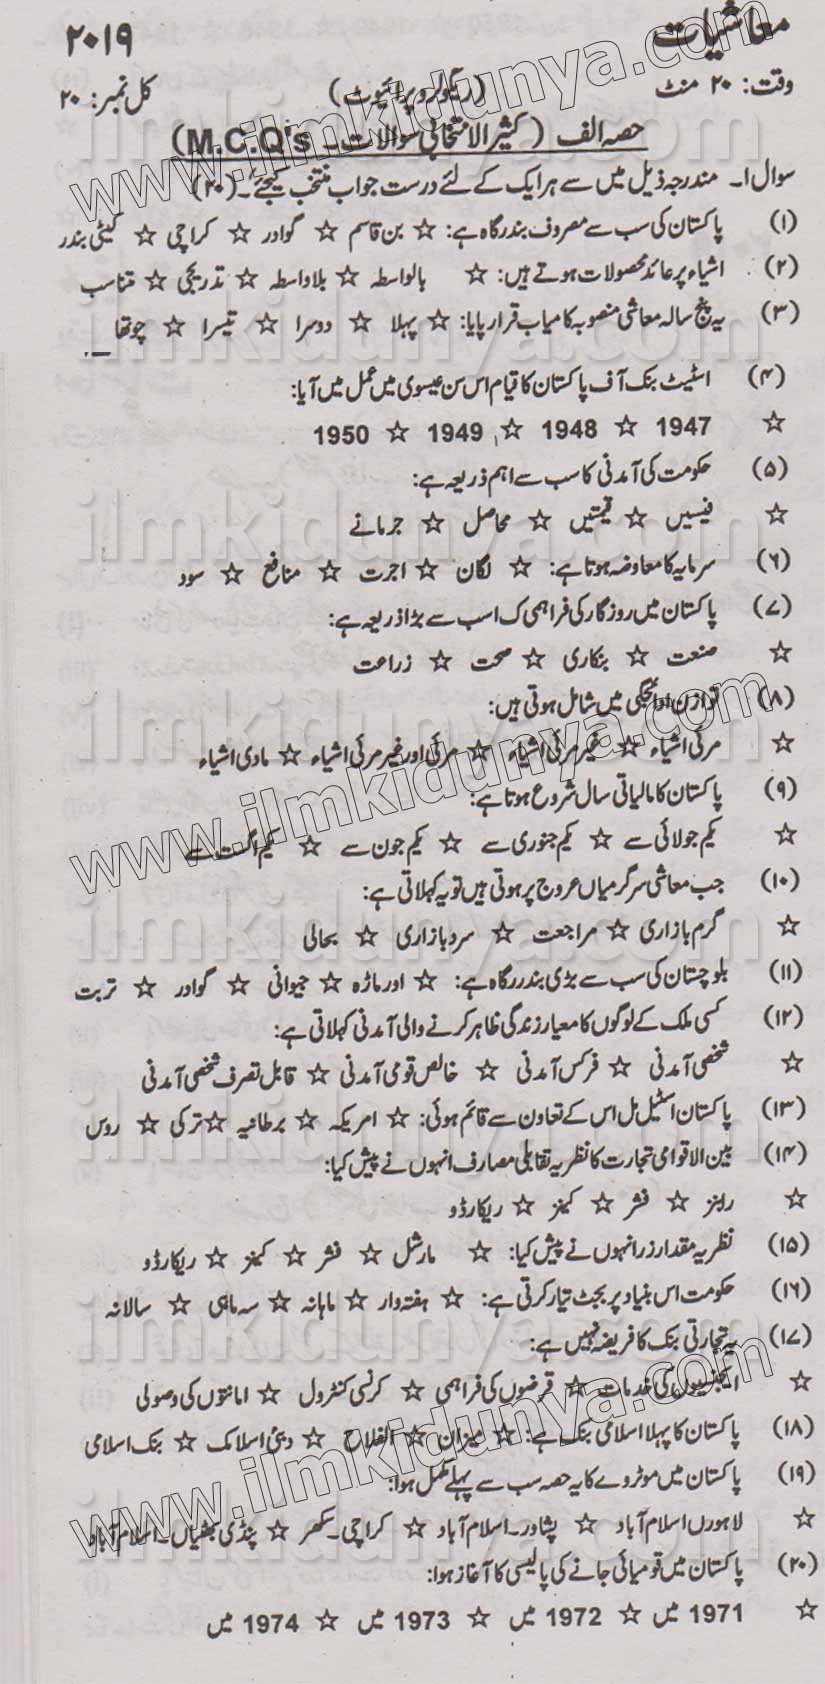 معاشیات
۲۰۱۹
وقت: ۲۰ منٹ (ریگولر و پرائیویٹ) کل نمبر: ۲۰
حصہ الف (کثیر الانتخابی سوالات۔ M.C.Q's)
سوال ۱۔ مندرجہ ذیل میں سے ہر ایک کے لئے درست جواب منتخب کیجئے۔ (۲۰)
(۱) پاکستان کی سب سے معروف بندرگاہ ہے: ☆ بن قاسم ☆ گوادر ☆ کراچی ☆ کیٹی بندر
(۲) اشیاء پر عائد محصولات ہوتے ہیں: ☆ بالواسطہ ☆ بلاواسطہ ☆ تدریجی ☆ متناسب
(۳) یہ پنج سالہ معاشی منصوبہ کامیاب قرار پایا: ☆ پہلا ☆ دوسرا ☆ تیسرا ☆ چوتھا
(۴) اسٹیٹ بنک آف پاکستان کا قیام اس سن عیسوی میں عمل میں آیا:
☆ 1947 ☆ 1948 ☆ 1949 ☆ 1950
(۵) حکومت کی آمدنی کا سب سے اہم ذریعہ ہے:
☆ فیسیں ☆ قیمتیں ☆ محاصل ☆ جرمانے
(۶) سرمایہ کا معاوضہ ہوتا ہے: ☆ لگان ☆ اجرت ☆ منافع ☆ سود
(۷) پاکستان میں روزگار کی فراہمی ک اسب سے بڑا ذریعہ ہے:
☆ صنعت ☆ بنکاری ☆ صحت ☆ زراعت
(۸) توازن ادائیگی میں شامل ہوتی ہیں:
☆ مرئی اشیاء ☆ غیر مرئی اشیاء ☆ مرئی اور غیر مرئی اشیاء ☆ مادی اشیاء
(۹) پاکستان کا مالیاتی سال شروع ہوتا ہے:
☆ یکم جولائی سے ☆ یکم جنوری سے ☆ یکم جون سے ☆ یکم اگست سے
(۱۰) جب معاشی سرگرمیاں عروج پر ہوتی ہیں تو یہ کہلاتی ہے:
☆ گرم بازاری ☆ مراجعت ☆ سرد بازاری ☆ بحالی
(۱۱) بلوچستان کی سب سے بڑی بندرگاہ ہے: ☆ اورماڑہ ☆ جیوانی ☆ گوادر ☆ تربت
(۱۲) کسی ملک کے لوگوں کا معیار زندگی ظاہر کرنے والی آمدنی کہلاتی ہے:
☆ شخصی آمدنی ☆ فی کس آمدنی ☆ خالص قومی آمدنی ☆ قابل تصرف شخصی آمدنی
(۱۳) پاکستان اسٹیل مل اس کے تعاون سے قائم ہوئی: ☆ امریکہ ☆ برطانیہ ☆ ترکی ☆ روس
(۱۴) بین الاقوامی تجارت کا نظریہ تقابلی مصارف انہوں نے پیش کیا:
☆ رابنز ☆ فشر ☆ کینز ☆ ریکارڈو
(۱۵) نظریہ مقدار زر انہوں نے پیش کیا: ☆ مارشل ☆ فشر ☆ کینز ☆ ریکارڈو
(۱۶) حکومت اس بنیاد پر بجٹ تیار کرتی ہے: ☆ ہفتہ وار ☆ ماہانہ ☆ سہ ماہی ☆ سالانہ
(۱۷) یہ تجارتی بنک کا فریضہ نہیں ہے:
☆ ایجنسیوں کی خدمات ☆ قرضوں کی فراہمی ☆ کرنسی کنٹرول ☆ امانتوں کی وصولی
(۱۸) پاکستان کا پہلا اسلامی بنک ہے: ☆ میزان ☆ الفلاح ☆ دبئی اسلامک ☆ بنک اسلامی
(۱۹) پاکستان میں موٹروے کا یہ حصہ سب سے پہلے مکمل ہوا:
☆ لاہور۔ اسلام آباد ☆ پشاور۔ اسلام آباد ☆ کراچی۔ سکھر ☆ پنڈی بھٹیاں۔ اسلام آباد
(۲۰) پاکستان میں قومیائی جانے کی پالیسی کا آغاز ہوا:
☆ 1971 میں ☆ 1972 میں ☆ 1973 میں ☆ 1974 میں
www.ilmkidunya.com